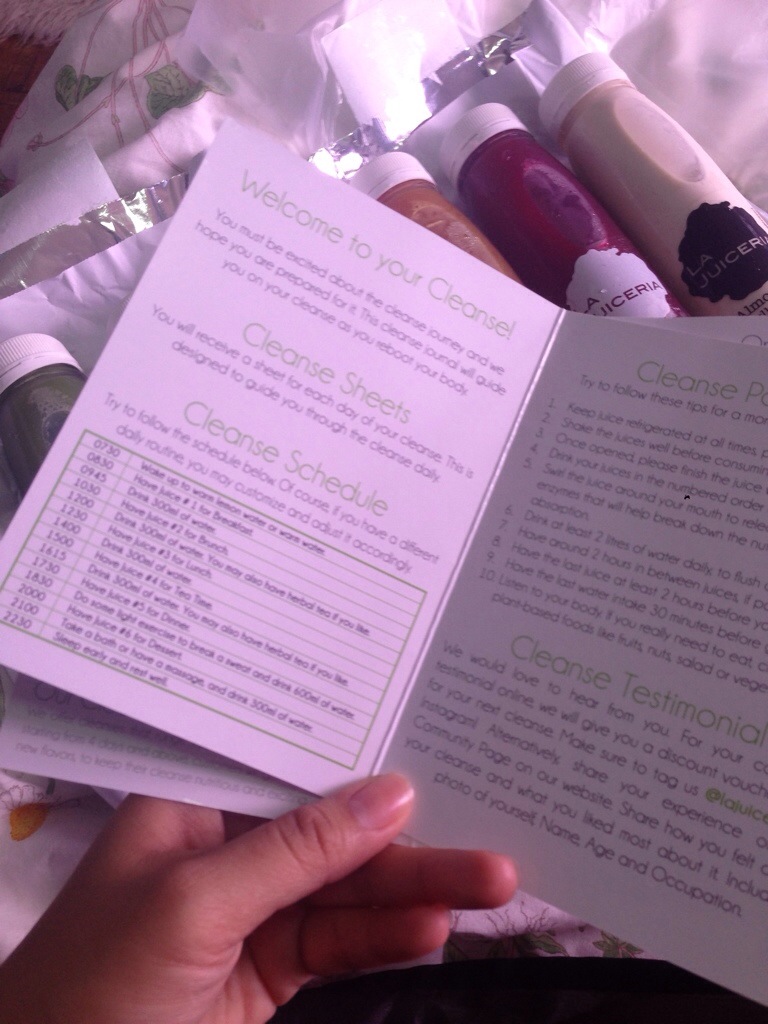 Welcome to your Cleanse!
You must be excited about the cleanse journey and we
hope you are prepared for it. This cleanse journal will guide
you on your cleanse as you reboot your body.
Cleanse Sheets
You will receive a sheet for each day of your cleanse. This is
designed to guide you through the cleanse daily.
Cleanse Schedule
Try to follow the schedule below. Of course, if you have a different
daily routine, you may customize and adjust it accordingly.
0730 Wake up to warm lemon water or warm water.
0830 Have juice # 1 for Breakfast.
0945 Drink 300ml of water.
1030 Have juice #2 for Brunch.
1200 Drink 300ml of water. You may also have herbal tea if you like.
1230 Have juice #3 for Lunch.
1400 Drink 300ml of water.
1500 Have juice #4 for Tea Time.
1615 Drink 300ml of water. You may also have herbal tea if you like.
1730 Have juice #5 for Dinner.
1830 Do some light exercise to break a sweat and drink 600ml of water.
2000 Have juice #6 for Dessert.
2100 Take a bath or have a massage, and drink 300ml of water.
2230 Sleep early and rest well.
Cleanse
Try to follow these tips for a
1. Keep juice refrigerated at all times,
2. Shake the juices well before
3. Once opened, please finish the juice
4. Drink your juices in the numbered order
5. Swirl the juice around your mouth to
enzymes that will help break down the
absorption.
6. Drink at least 2 litres of water daily, to flush
7. Have around 2 hours in between juices, if
8. Have the last juice at least 2 hours before
9. Have the last water intake 30 minutes before
10. Listen to your body. If you really need to eat,
plant-based foods like fruits, nuts, salad or
Cleanse Testimonial
We would love to hear from you. For your
testimonial online, we will give you a discount
for your next cleanse. Make sure to tag us
Instagram! Alternatively, share your experience
Community Page on our website. Share how you felt
your cleanse and what you liked most about it.
photo of yourself, Name, Age and Occupation.
starting from 4 days and above
new flavors, to keep their cleanse nutritious and
LA
JUICERIA
LA
JUICERIA